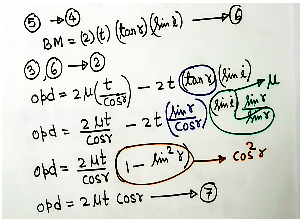 ⑤ → ④
BM = (2)(t) (tan r) (sin i) → ⑥
③ ⑥ → ②
opd = 2μ(t/cos r) - 2t (tan r) (sin i) → μ
opd = 2μt/cos r - 2t (sin r/cos r) (sin i) sin i/sin r
opd = 2μt/cos r (1 - sin²r) → cos²r
opd = 2μt cos r → ⑦